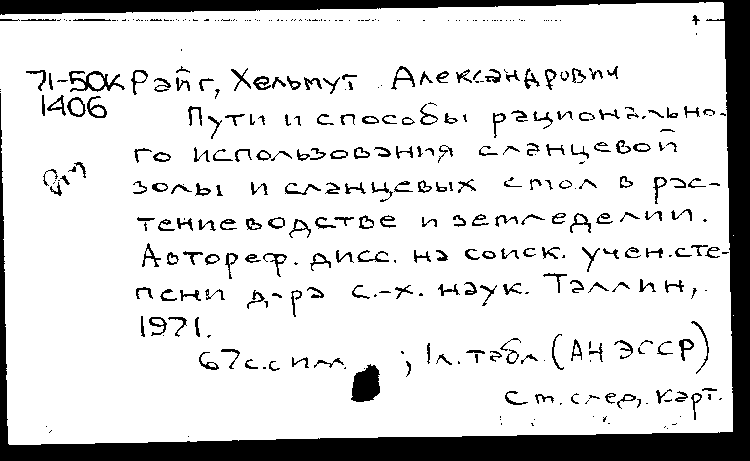 71-50К Рейг, Хельмут Александрович
1406
Пути и способы рационально-
го использования сланцевой
золы и сланцевых смол в рас-
тениеводстве и земледелии.
Автореф. дисс. на соиск. учен. сте-
пени д-ра с.-х. наук. Таллин,
1971.
67 с. с илл. ; 1 л. табл. (АН ЭССР)
См. след. карт.